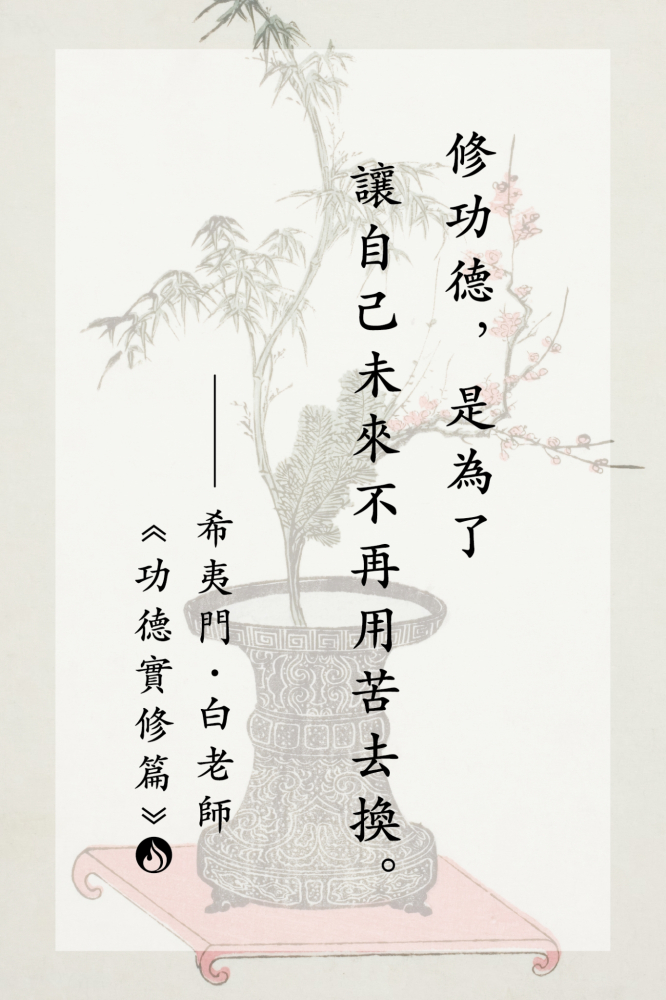 修功德，是為了
讓自己未來不再用苦去換。
——希夷門·白老師
《功德實修篇》